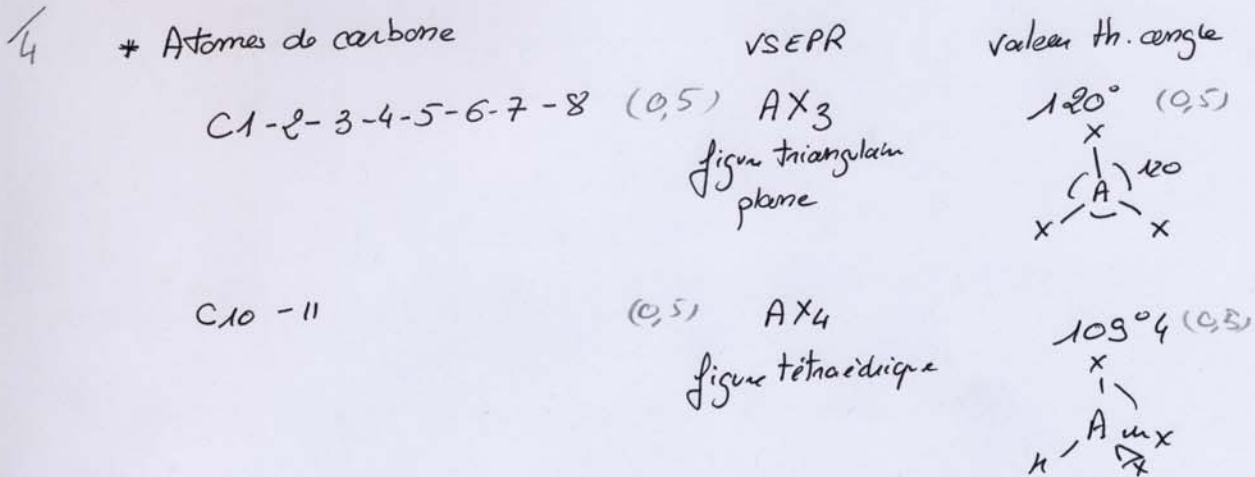 /4 * Atomes de carbone VSEPR valeur th. angle
C1-2-3-4-5-6-7-8 (0,5) AX3 120° (0,5)
figure triangulaire
plane
X
A 120
X X
C10 - 11 (0,5) AX4 109°4 (0,5)
figure tétraèdrique
X
A X
X X